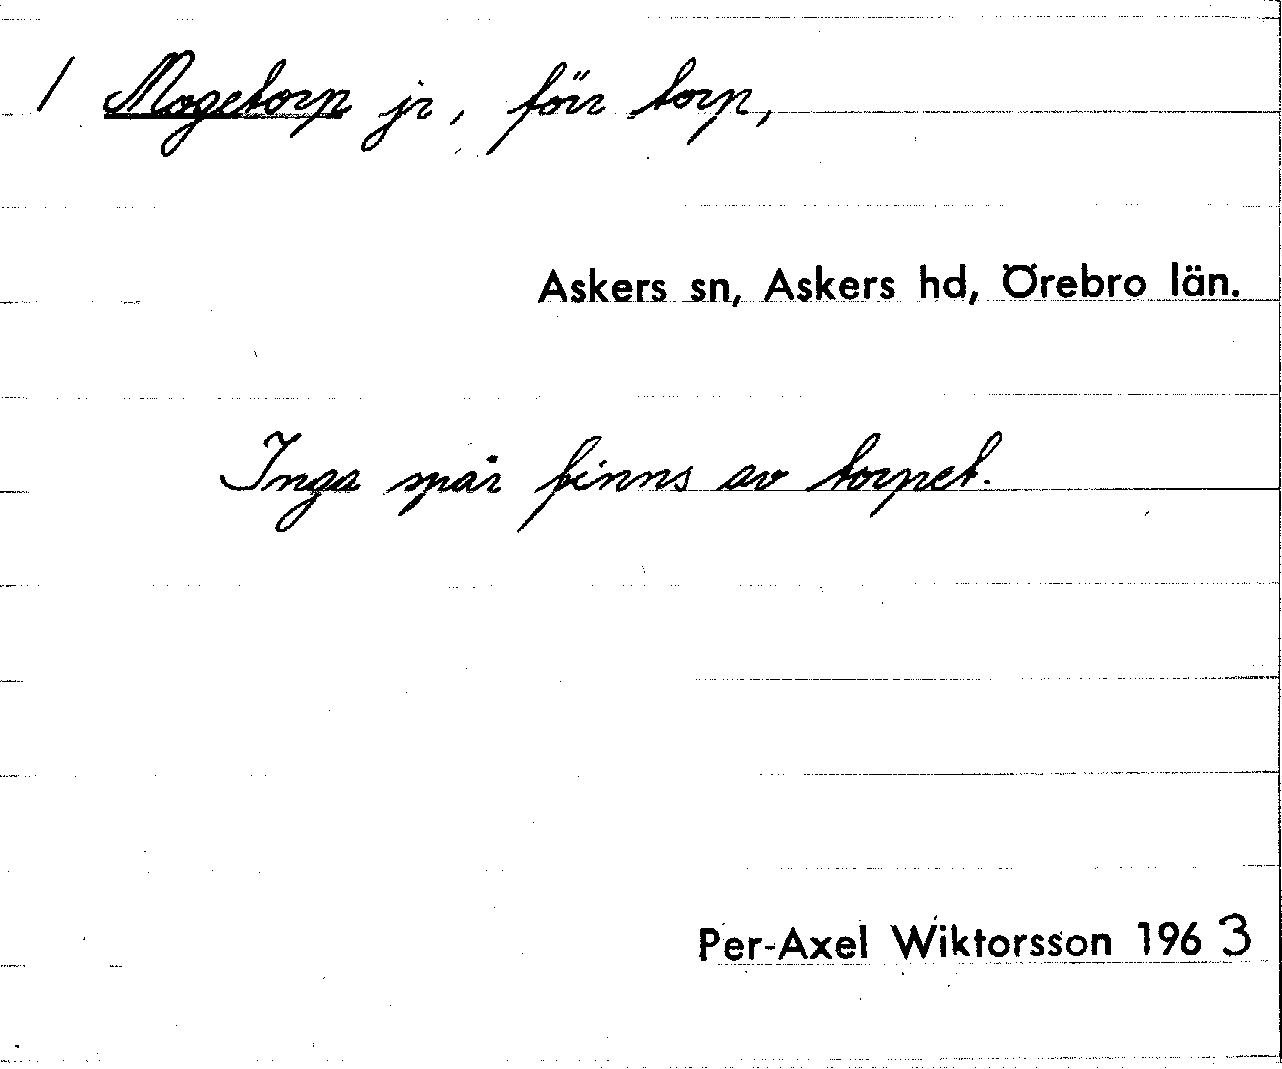 / Mogetorp jr, förr torp,
Askers sn, Askers hd, Örebro län.
Inga spår finns av torpet.
Per-Axel Wiktorsson 1963